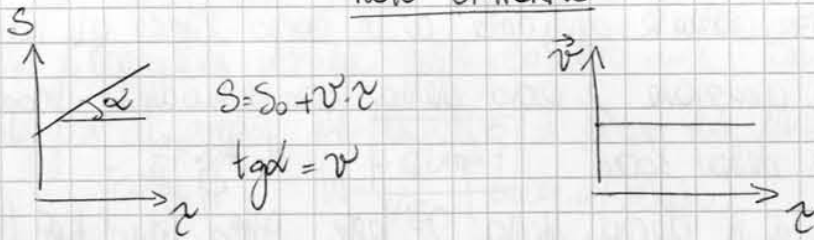 S
α
τ
S=S₀+v·τ
tgα = v
v⃗
τ